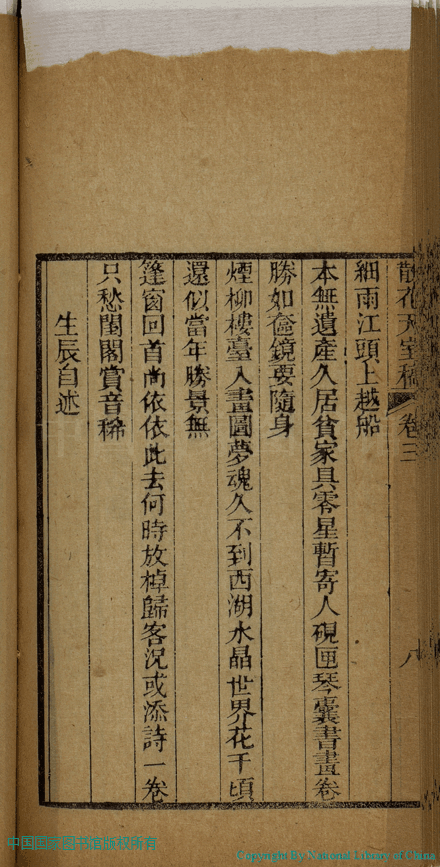 散花天室稿 卷三 八
細雨江頭上越船
本無遺產久居貧家具零星暫寄人硯匣琴囊書畫卷
勝如奩鏡要隨身
煙柳樓臺入畫圖夢魂久不到西湖水晶世界花千頃
還似當年勝景無
篷窗回首尚依依此去何時放棹歸客況或添詩一卷
只愁閨閣賞音稀
生辰自述
中国国家图书馆版权所有
Copyright By National Library of China